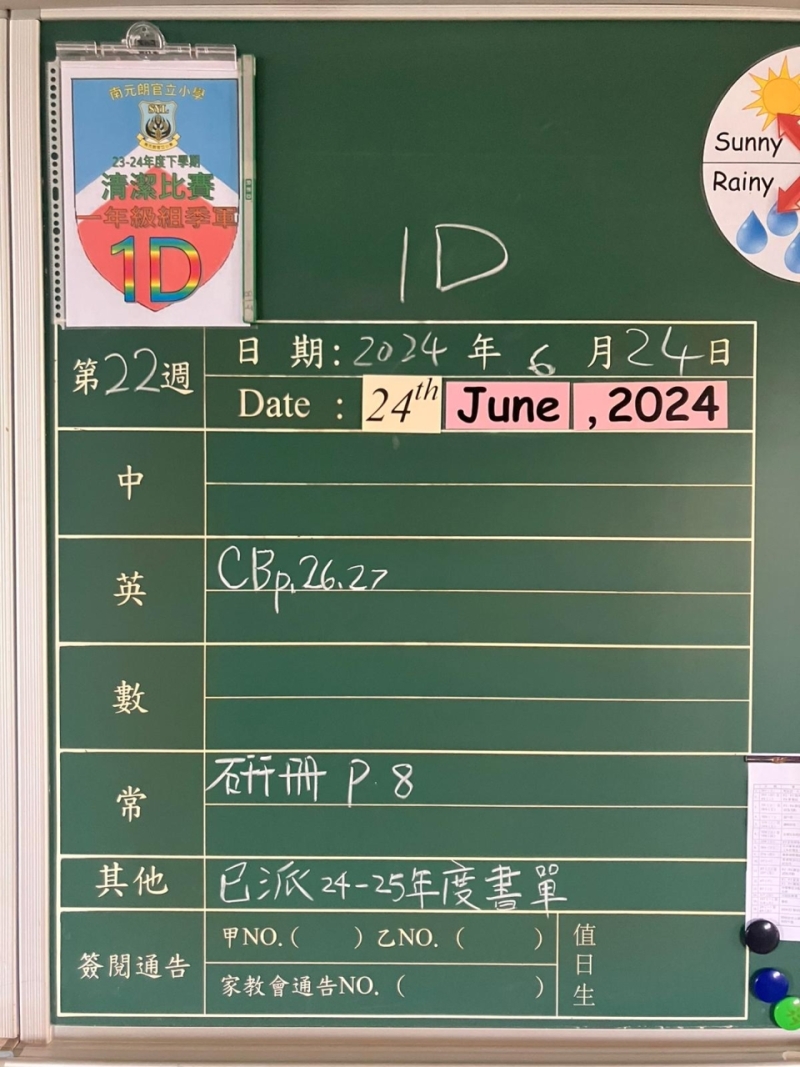 南元朗官立小學
SYL
23-24年度下學期
清潔比賽
一年級組季軍
1D
Sunny
Rainy
1D
第22週
日 期：2024 年 6 月 24 日
Date : 24th June , 2024
中
英 CBp.26.27
數
常 研冊 P.8
其他 已派24-25年度書單
簽閱通告
甲NO.( ) 乙NO. ( )
家教會通告NO. ( )
值日生